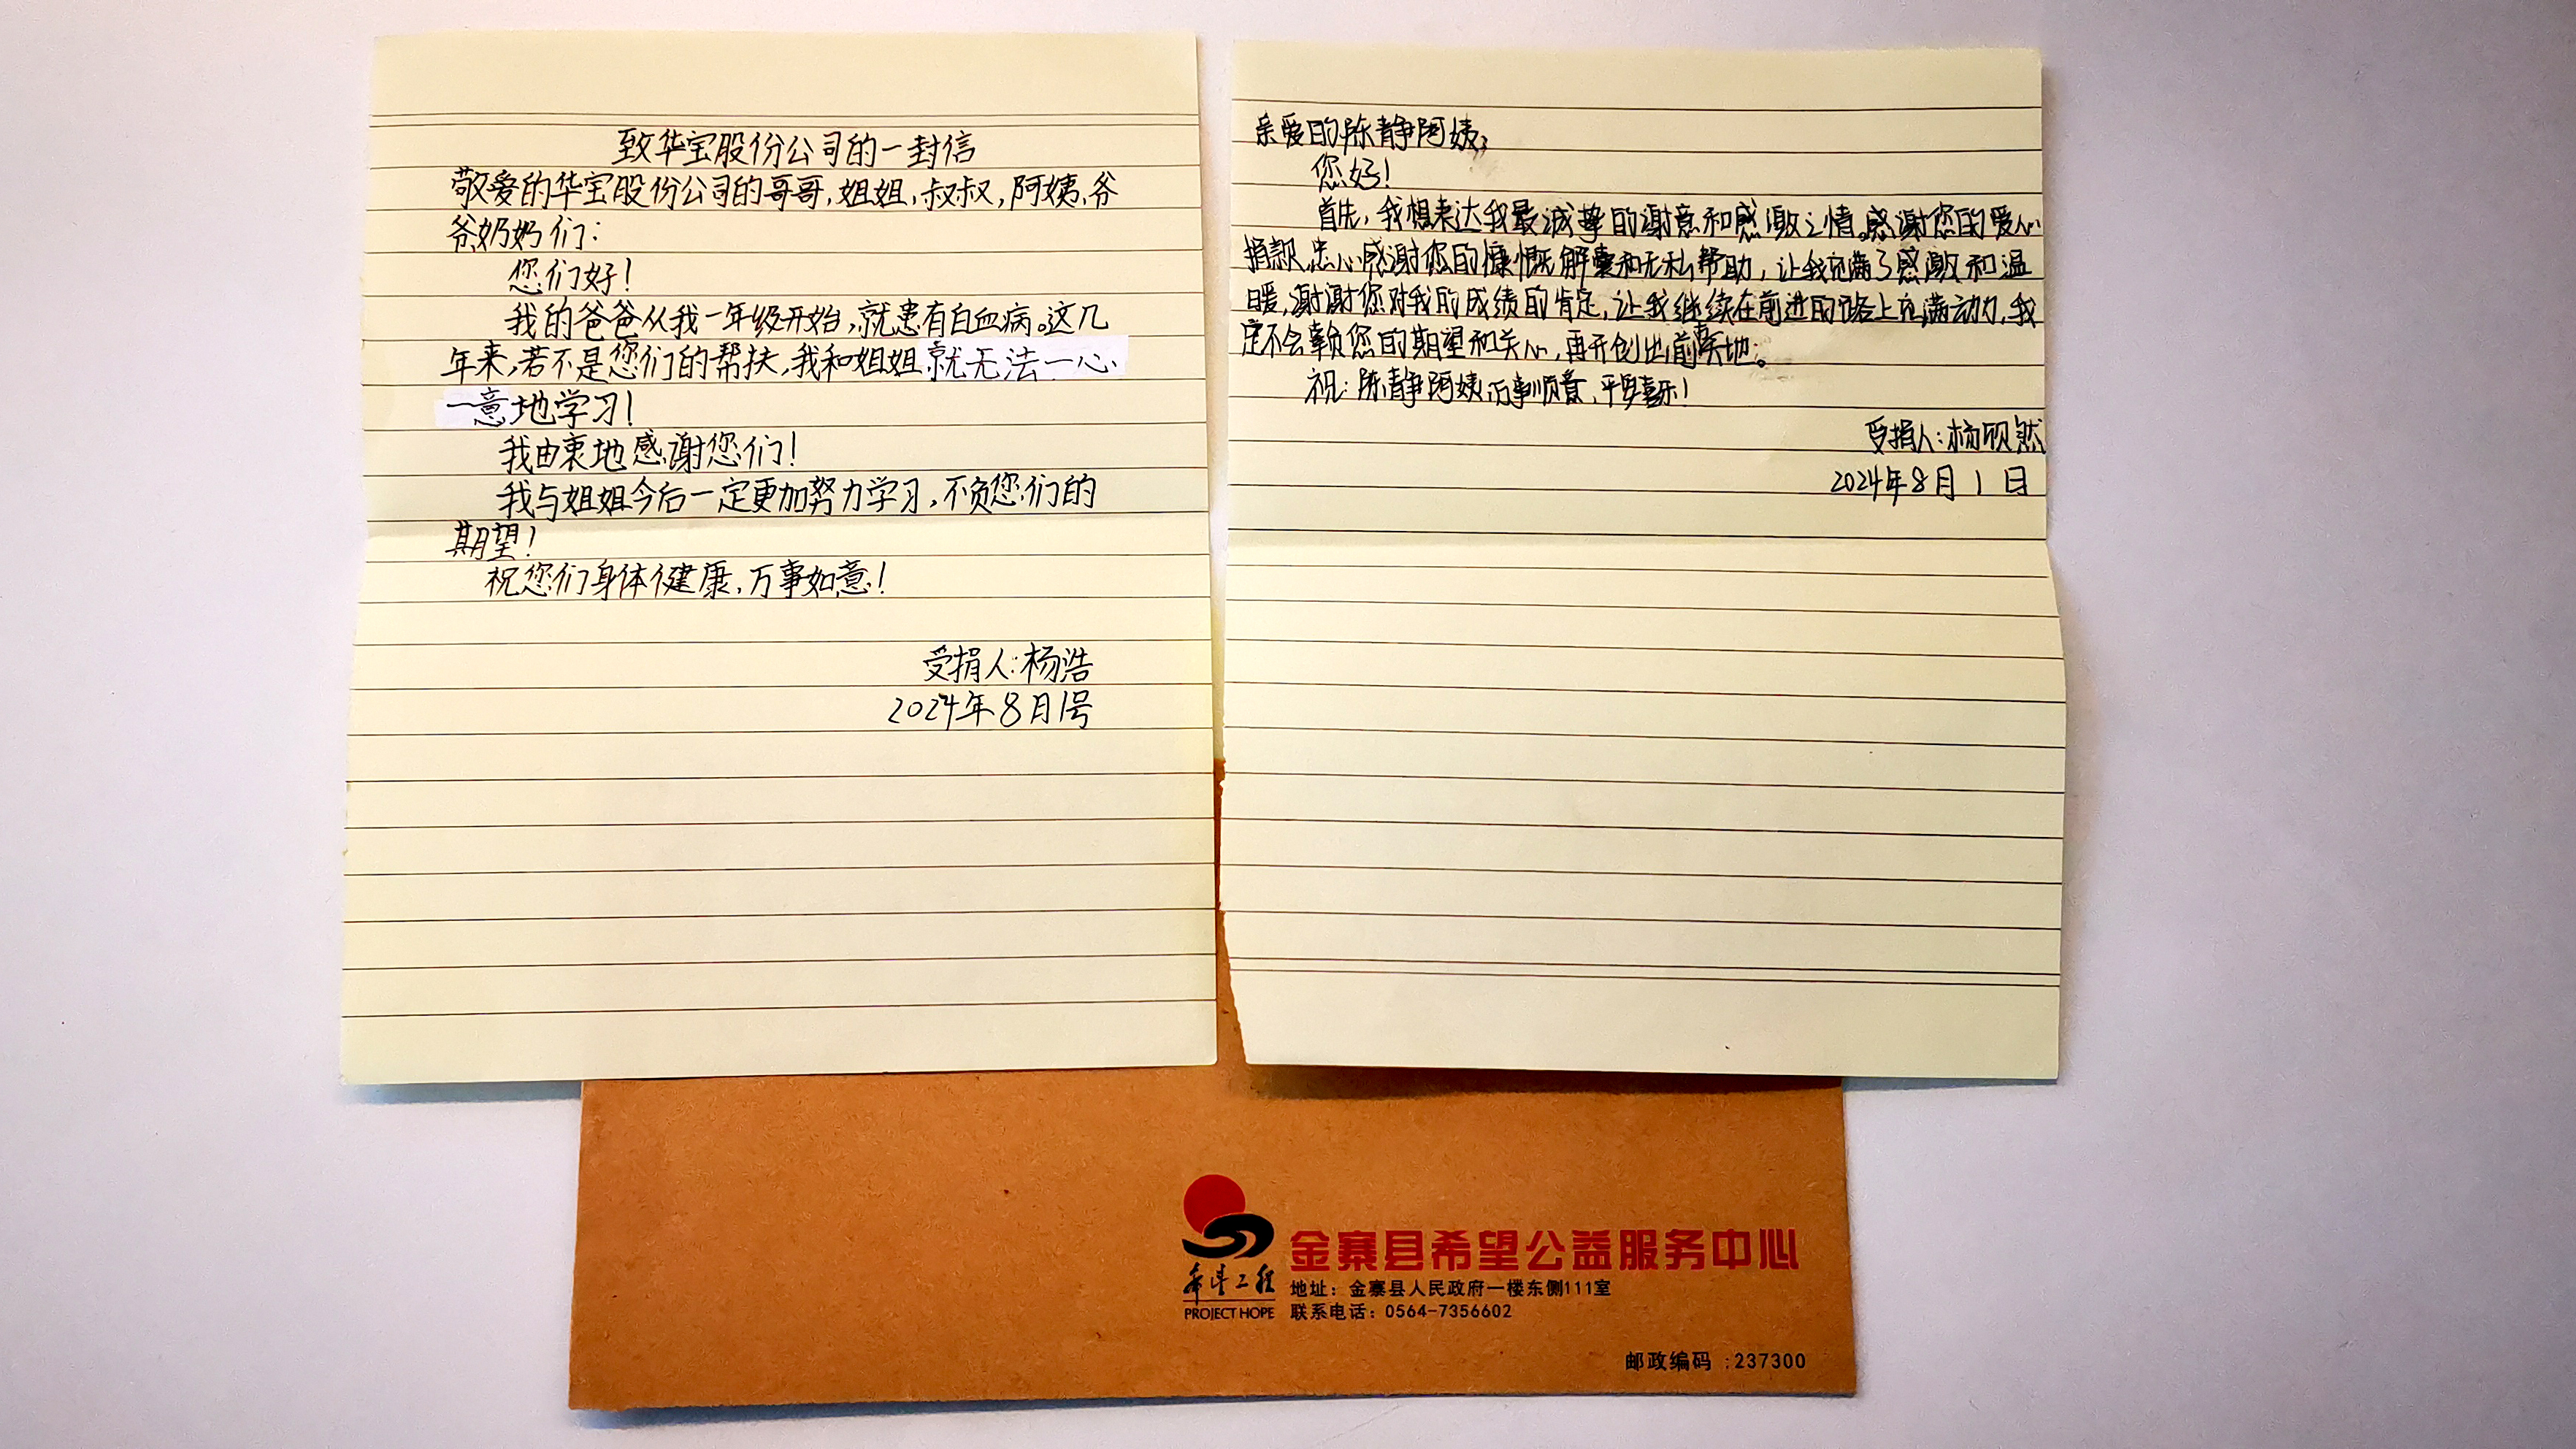 致华宝股份公司的一封信
敬爱的华宝股份公司的哥哥,姐姐,叔叔,阿姨,爷
爷奶奶们:
您们好!
我的爸爸从我一年级开始,就患有白血病。这几
年来,若不是您们的帮扶,我和姐姐就无法一心
一意地学习!
我由衷地感谢您们!
我与姐姐今后一定更加努力学习,不负您们的
期望!
祝您们身体健康,万事如意!
受捐人:杨浩
2024年8月1号
亲爱的陈静阿姨:
您好!
首先,我想表达我最诚挚的谢意和感激之情。感谢您的爱心
捐款,忠心感谢您的慷慨解囊和无私帮助,让我充满了感激和温
暖,谢谢您对我的成绩的肯定,让我继续在前进的路上充满动力,我
定不会辜负您的期望和关心,再开创出新天地。
祝:陈静阿姨万事顺意,平安喜乐!
受捐人:杨硕然
2024年8月1日
希望工程
PROJECT HOPE
金寨县希望公益服务中心
地址:金寨县人民政府一楼东侧111室
联系电话:0564-7356602
邮政编码:237300